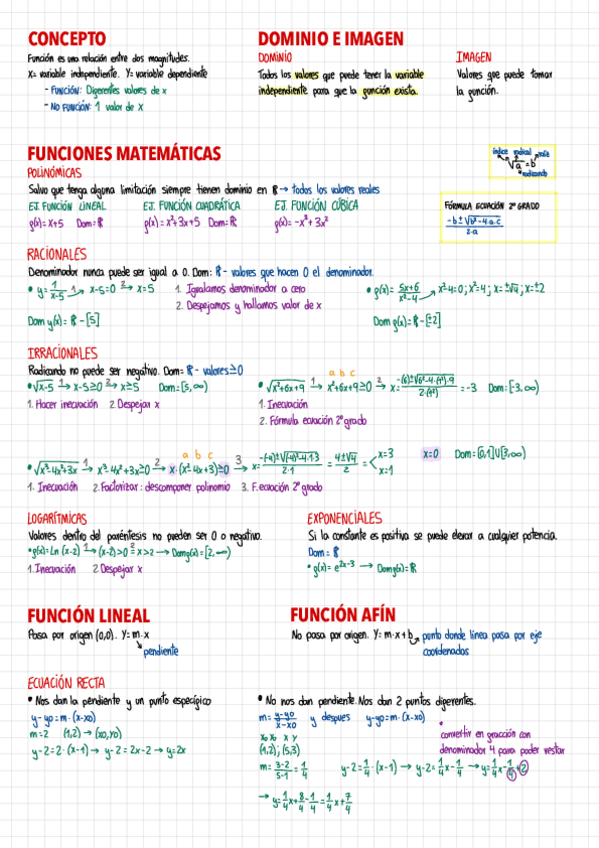 CONCEPTO
Función es una relación entre dos magnitudes.
X= variable independiente. Y= variable dependiente
- FUNCIÓN: Diferentes valores de x
- NO FUNCIÓN: 1 valor de x
DOMINIO E IMAGEN
DOMINIO
Todos los valores que puede tener la variable
independiente para que la función exista.
IMAGEN
Valores que puede tomar
la función.
FUNCIONES MATEMÁTICAS
POLINÓMICAS
Salvo que tenga alguna limitación siempre tienen dominio en ℝ → todos los valores reales
EJ. FUNCIÓN LINEAL
f(x)= x+5 Dom= ℝ
EJ. FUNCIÓN CUADRÁTICA
f(x)= x²+3x+5 Dom= ℝ
EJ. FUNCIÓN CÚBICA
f(x)= -x³+3x²
índice radical raíz
√a = b
radicando
FÓRMULA ECUACIÓN 2º GRADO
-b±√b²-4·a·c / 2·a
RACIONALES
Denominador nunca puede ser igual a 0. Dom: ℝ - valores que hacen 0 el denominador.
• y= 1/x-5 1→ x-5=0 2→ x=5
1. Igualamos denominador a cero
2. Despejamos y hallamos valor de x
Dom y(x)= ℝ - [5]
• f(x)= 5x+6/x²-4 → x²-4=0; x²=4; x=±√4; x=±2
Dom f(x)= ℝ - [±2]
IRRACIONALES
Radicando no puede ser negativo. Dom= ℝ - valores≥0
• √x-5 1→ x-5≥0 2→ x≥5 Dom=[5,∞)
1. Hacer inecuación 2. Despejar x
a b c
• √x²+6x+9 1→ x²+6x+9≥0 2→ x= -(6)±√6²-4·(1²)·9 / 2·(1²) = -3 Dom: [-3,∞)
1. Inecuación
2. Fórmula ecuación 2º grado
a b c
• √x³-4x²+3x 1→ x³-4x²+3x≥0 2→ x·(x²-4x+3)≥0 3→ x= -(-4)±√(-4)²-4·1·3 / 2·1 = 4±√4 / 2 = x=3 x=1 x=0 Dom=[0,1]U[3,∞)
1. Inecuación 2. Factorizar: descomponer polinomio 3. F. ecuación 2º grado
LOGARÍTMICAS
Valores dentro del paréntesis no pueden ser 0 o negativo.
• f(x)= Ln (x-2) 1→ (x-2)>0 2= x>2 → Domf(x)=[2,-∞)
1. Inecuación 2. Despejar x
EXPONENCIALES
Si la constante es positiva se puede elevar a cualquier potencia.
Dom = ℝ
• f(x)= e^2x-3 → Domf(x)= ℝ
FUNCIÓN LINEAL
Pasa por origen (0,0). Y= m·x
pendiente
FUNCIÓN AFÍN
No pasa por origen. Y= m·x+b → punto donde línea pasa por eje
coordenadas
ECUACIÓN RECTA
• Nos dan la pendiente y un punto específico
y-y0=m·(x-x0)
m=2 (1,2) → (x0,y0)
y-2=2·(x-1) → y-2=2x-2 → y=2x
• No nos dan pendiente. Nos dan 2 puntos diferentes.
m= y-y0/x-x0 y despues y-y0=m·(x-x0)
x0 y0 x y
(1,2); (5,3)
m= 3-2/5-1 = 1/4 y-2=1/4·(x-1) → y-2=1/4x-1/4 → y=1/4x-1/4+2
*
convertir en fracción con
denominador 4 para poder restar
→ y=1/4x+8/4-1/4=1/4x+7/4